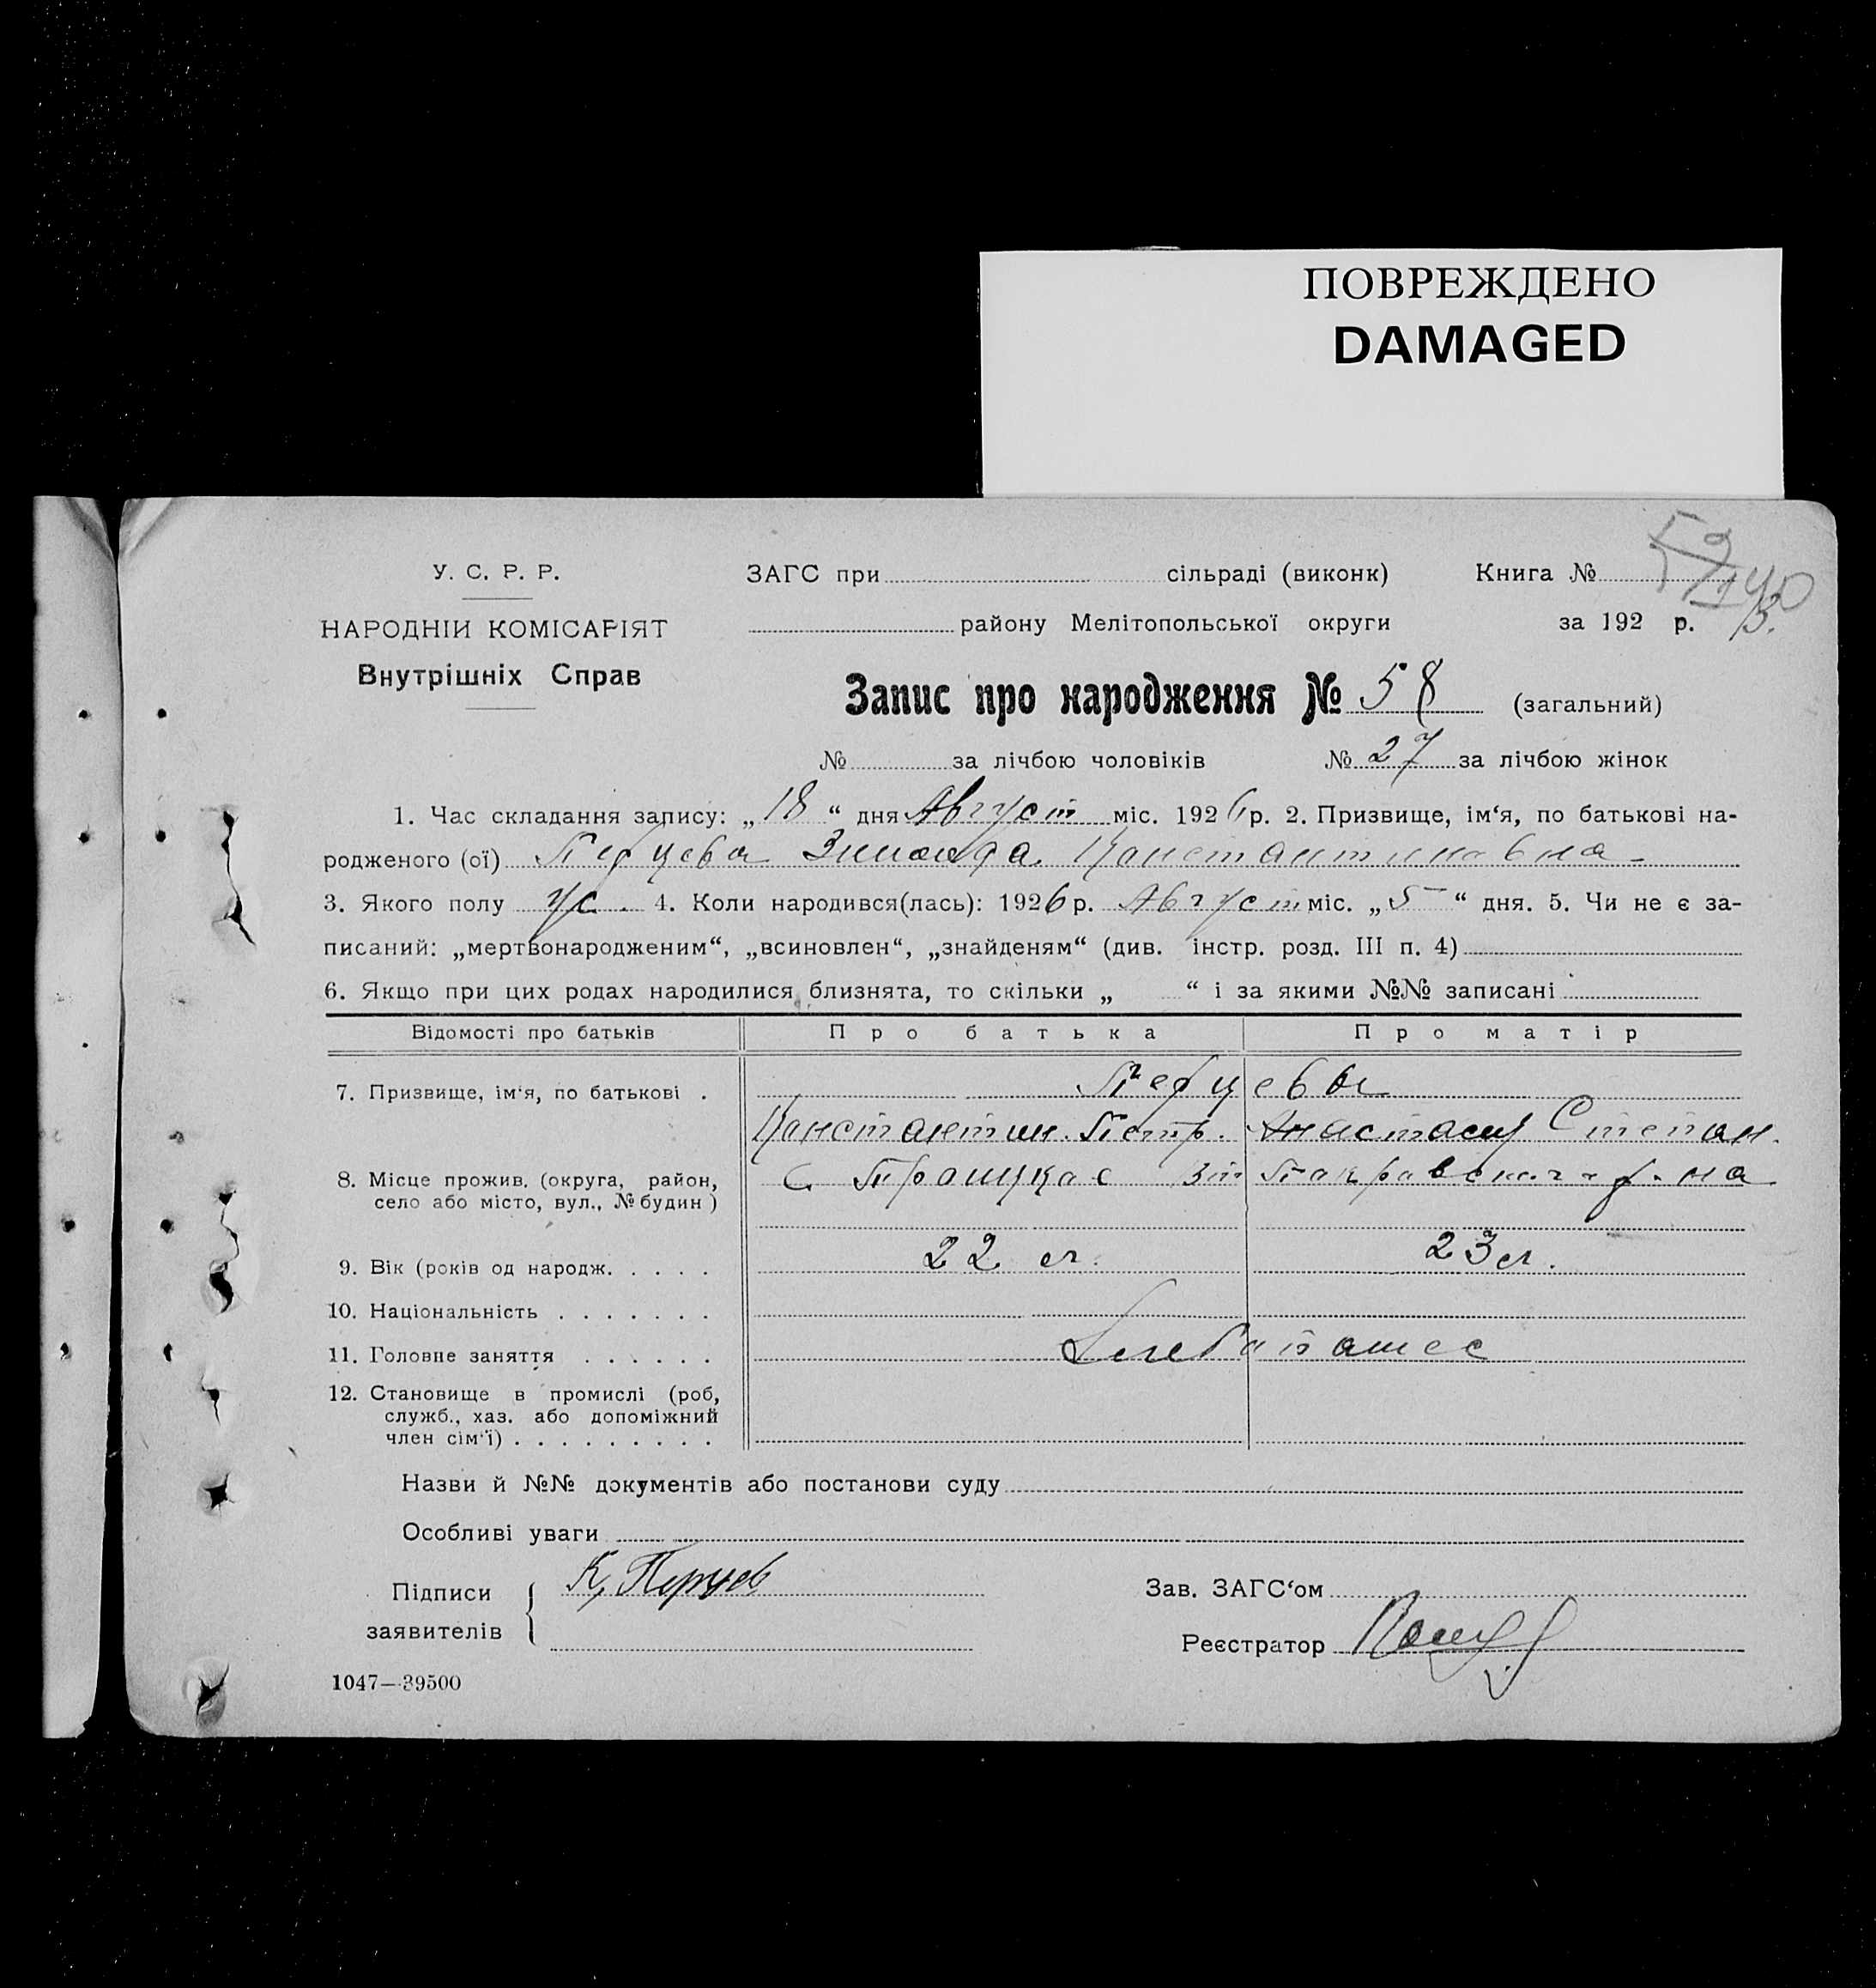 ПОВРЕЖДЕНО
DAMAGED
У. С. Р. Р.
НАРОДНІЙ КОМІСАРІЯТ
Внутрішніх Справ
ЗАГС при сільраді (виконк) Книга №
району Мелітопольської округи за 192 р.
Запис про народження № 58 (загальний)
№ за лічбою чоловіків № 27 за лічбою жінок
1. Час складання запису: „18“ дня Август міс. 1926 р. 2. Призвище, ім‘я, по батькові на-
родженого (ої) Перцева Зинаида Констант
3. Якого полу ж. 4. Коли народився(лась): 1926 р. Август міс. „5“ дня. 5. Чи не є за-
писаний: „мертвонародженим“, „всиновлен“, „знайденям“ (див. інстр. розд. III п. 4)
6. Якщо при цих родах народилися близнята, то скільки „ “ і за якими №№ записані
Відомості про батьків Про батька Про матір
7. Призвище, ім‘я, по батькові . Перцевы
Константин Петр. Степан.
8. Місце прожив. (округа, район,
село або місто, вул., № будин) С
9. Вік (років од народж. . . . . 22 л. 23 л.
10. Національність . . . . . . .
11. Головне заняття . . . . . .
12. Становище в промислі (роб,
служб., хаз. або допоміжний
член сім‘ї) . . . . . . . . .
Назви й №№ документів або постанови суду
Особливі уваги
Підписи К. Перцев
заявителів
Зав. ЗАГС‘ом
Реєстратор
1047—39500